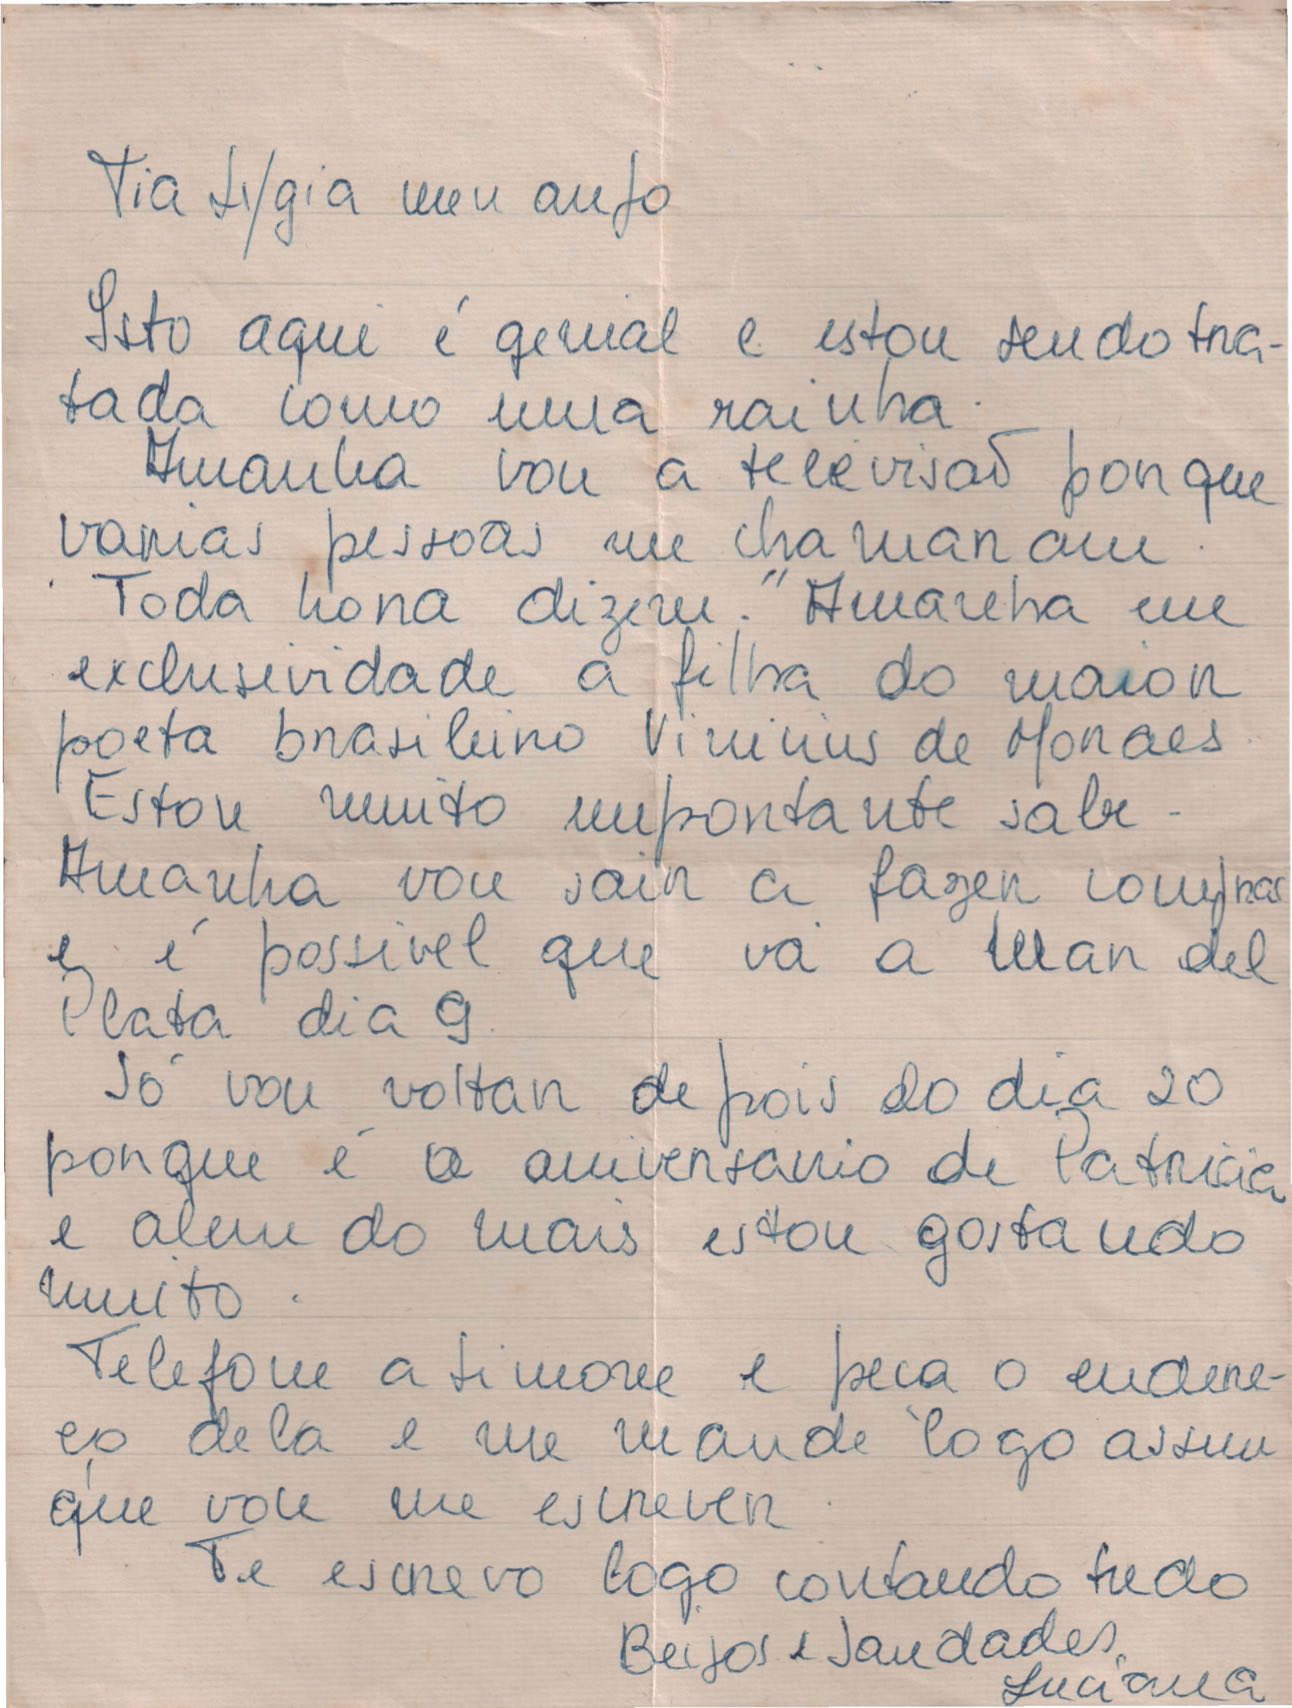 Tia Lygia meu anjo
Isto aqui é genial e estou sendo tra-
tada como uma rainha.
Amanha vou a televisaõ porque
varias pessoas me chamaram.
Toda hora dizem. "Amanha em
exclusividade a filha do maior
poeta brasileiro Vinicius de Moraes.
Estou muito importante sabe.
Amanha vou sair a fazer compras
e é possivel que vá a Mar del
Plata dia 9
Só vou voltar depois do dia 20
porque é o aniversario de Patricia
e alem do mais estou gostando
muito.
Telefone a Simone e peça o endere-
ço dela e me mande logo assim
que vou me escrever.
Te escrevo logo contando tudo
Beijos e Saudades,
Luciana